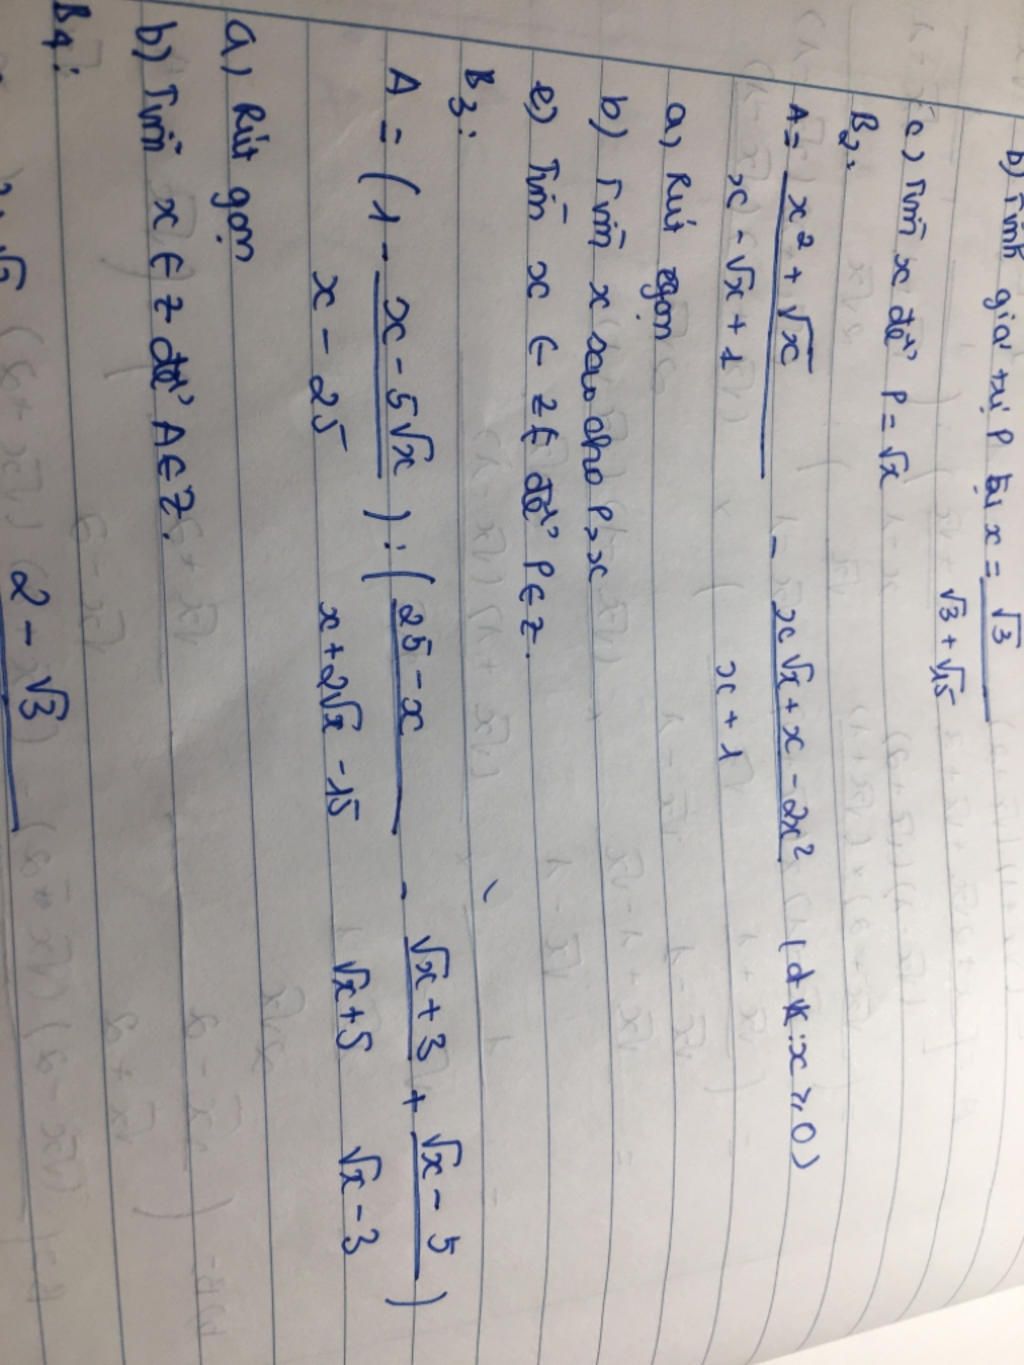 b) Tính giá trị P tại x = √3 / √3 + √15
c) Tìm x để P = √x
B2:
A = x² + √x / x - √x + 1 - x√x + x - 2x² / x + 1 (đk: x ≥ 0)
a) Rút gọn
b) Tìm x sao cho P > x
e) Tìm x ∈ Z để P ∈ Z.
B3:
A = (1 - x - 5√x / x - 25) : (25 - x / x + 2√x - 15 - √x + 3 / √x + 5 + √x - 5 / √x - 3)
a) Rút gọn
b) Tìm x ∈ Z để A ∈ Z.
B4:
2 - √3